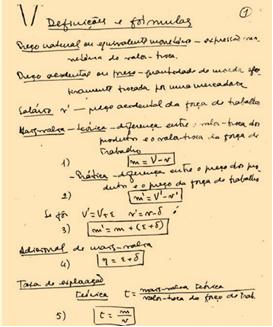 1
Definições e fórmulas
Preço natural ou equivalente monetário — expressão mo-
netária do valor-troca.
Preço acidental ou preço — quantidade de moeda efe-
tivamente trocada por uma mercadoria
Salário r' — preço acidental da força de trabalho
Mais-valia — teórica — diferença entre o valor-troca do
produto e o valor-troca da força de
trabalho
1) m = V - r
— Prática — diferença entre o preço do pro
duto e o preço da força de trabalho
2) m' = V' - r'
Se fôr V' = V + ε r' = r - δ
3) m' = m + (ε + δ)
Adicional de mais-valia
4) η = ε + δ
Taxa de exploração
teórica t = mais-valia teórica
valor-troca da força de trab.
5) t = m/r